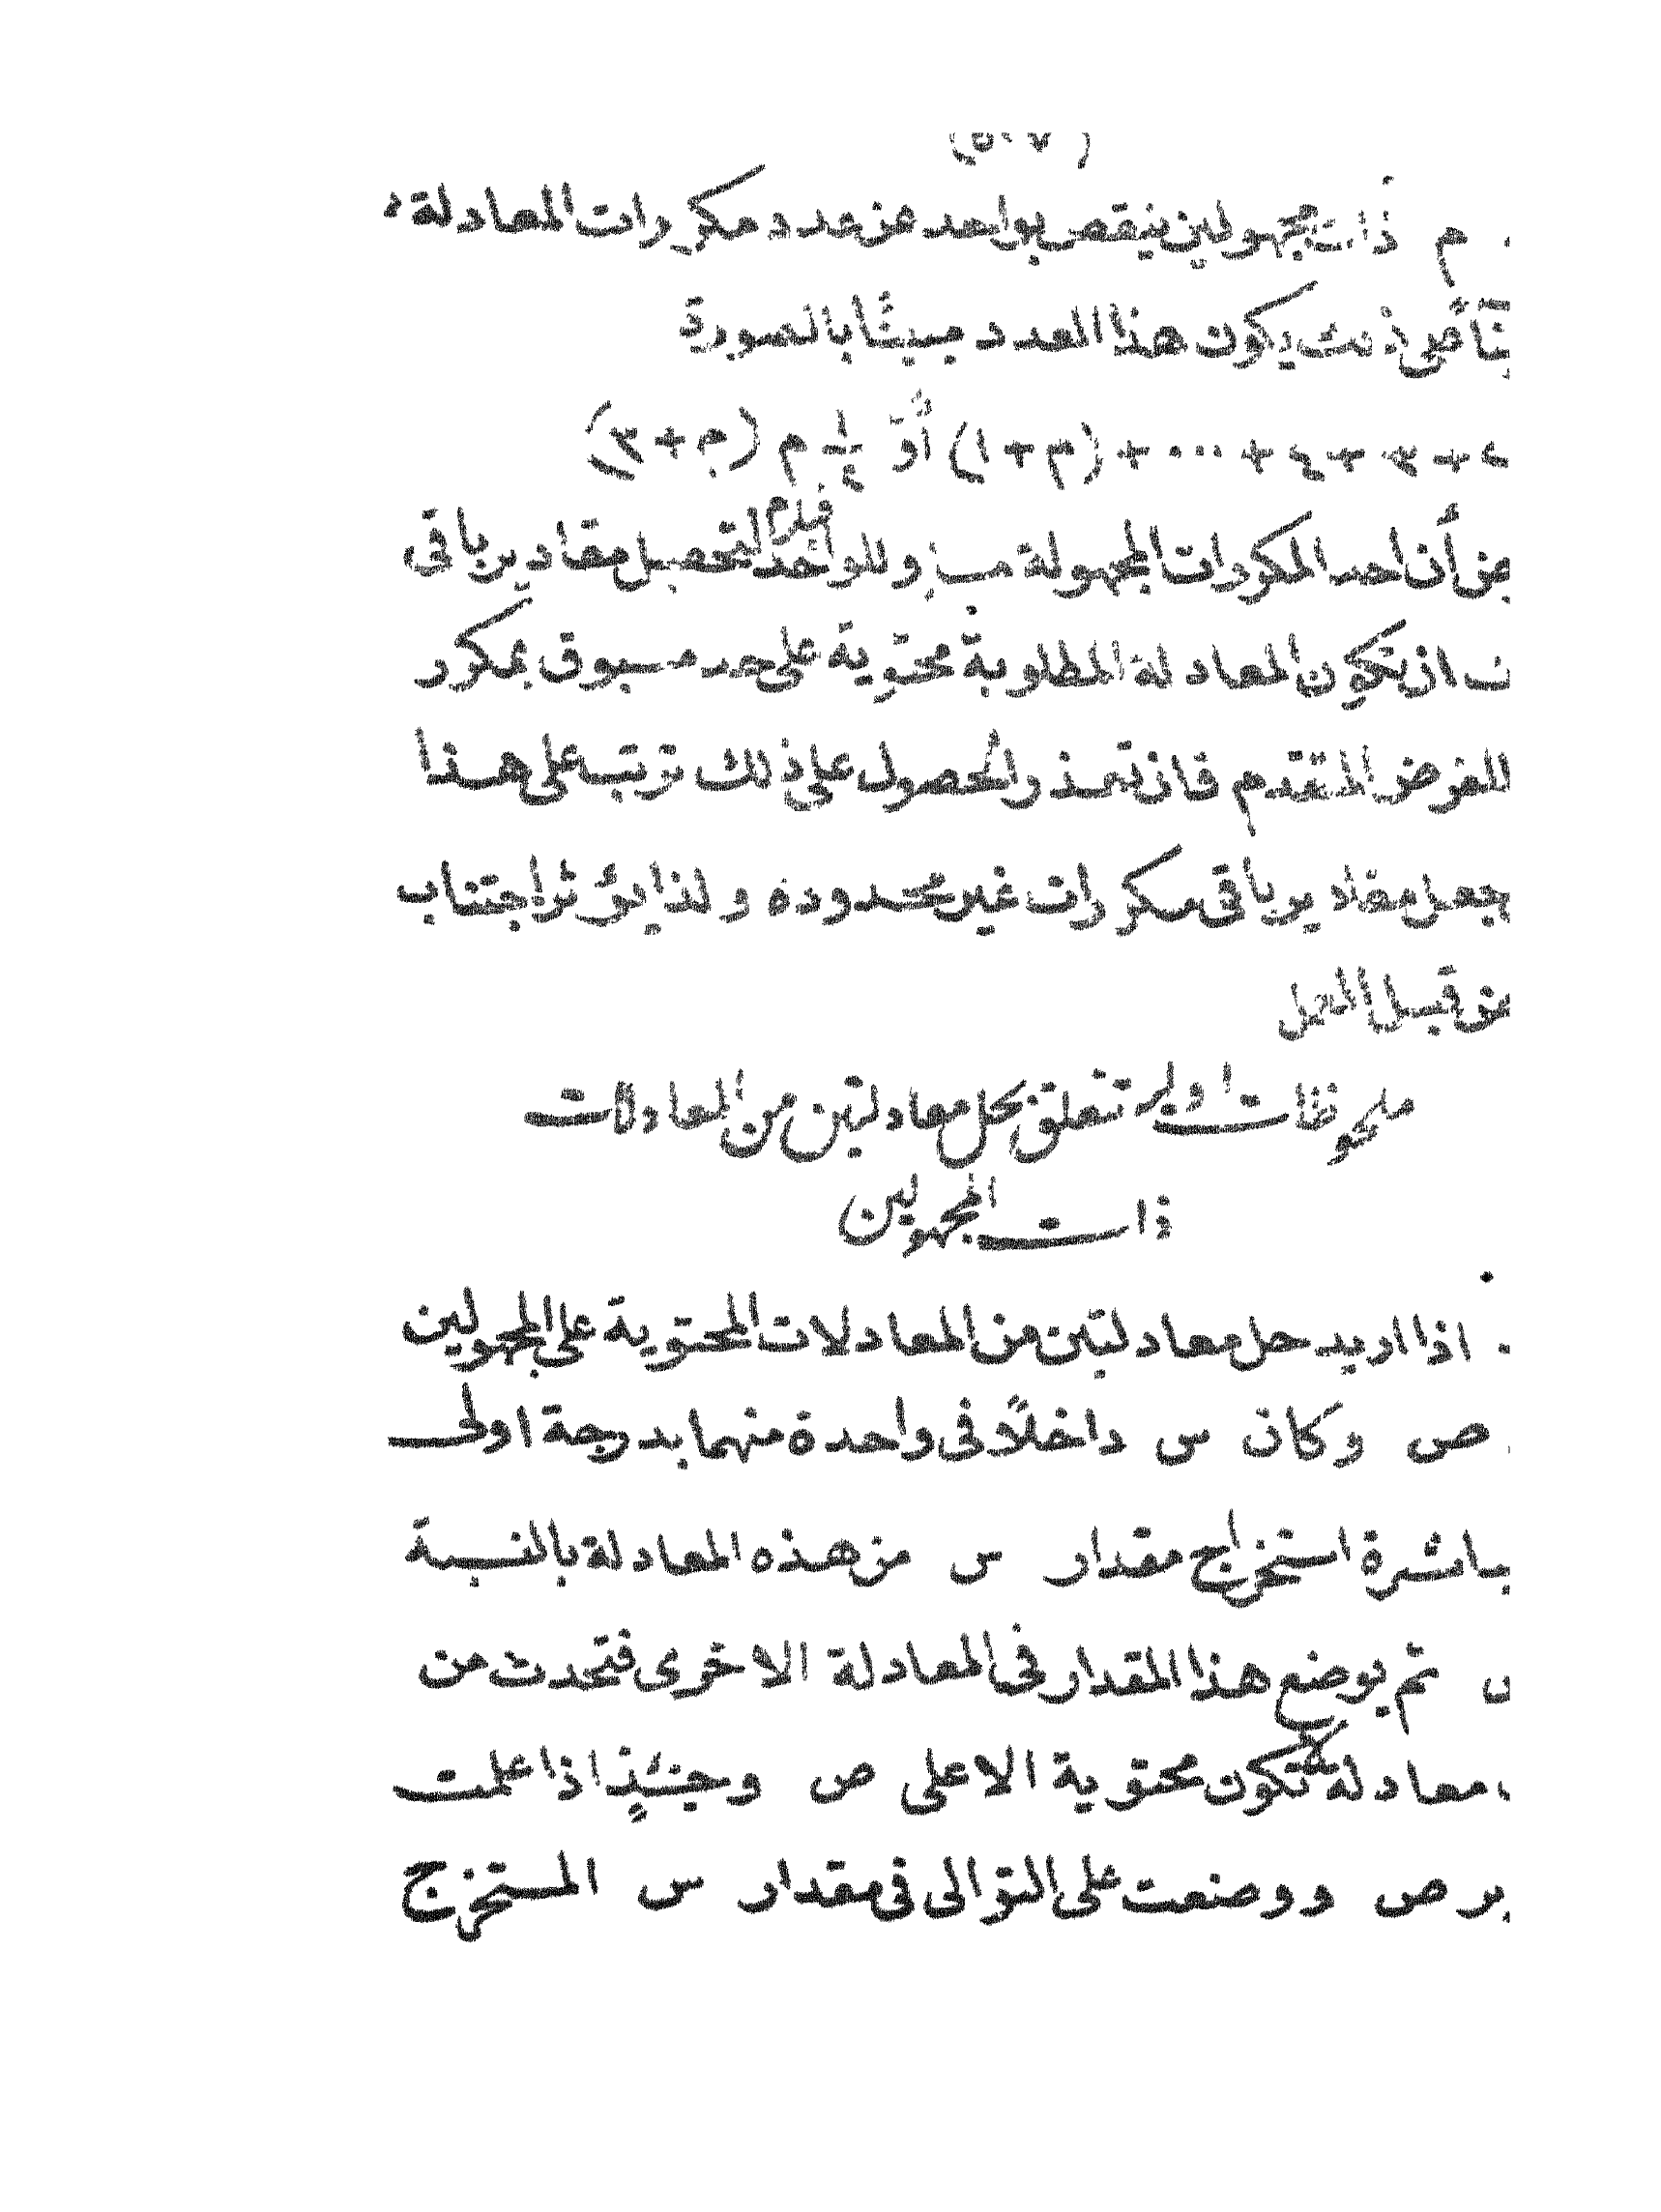 (٥٠٧)
م ذات مجهولين ينقص بواحد عن عدد مكررات المعادلة
ذلك يكون هذا العدد مبينًا بالصورة
٢+٣+٤+...+(م+١) أو ١/٢ م (م+٣)
من أن احد المكررات المجهولة مساوٍ للواحد فيلزم لتحصيل مقادير باقى
ان تكون المعادلة المطلوبة محتوية على حد مسبوق بمكرر
للغرض المتقدم فان تعذر الحصول على ذلك ترتب على هذا
جعل مقادير باقى مكررات غير محدوده ولذا يؤثر اجتناب
من قبل العمل
ملحوظات اولية تتعلق بحل معادلتين من المعادلات
ذات المجهولين
اذا اريد حل معادلتين من المعادلات المحتوية على المجهولين
ص وكان س داخلاً فى واحدة منهما بدرجة اولى
مباشرة استخراج مقدار س من هذه المعادلة بالنسبة
ثم يوضع هذا المقدار فى المعادلة الاخرى فتحدث من
معادلة تكون محتوية الا على ص وحينئذٍ اذا علمت
ص ووضعت على التوالى فى مقدار س المستخرج